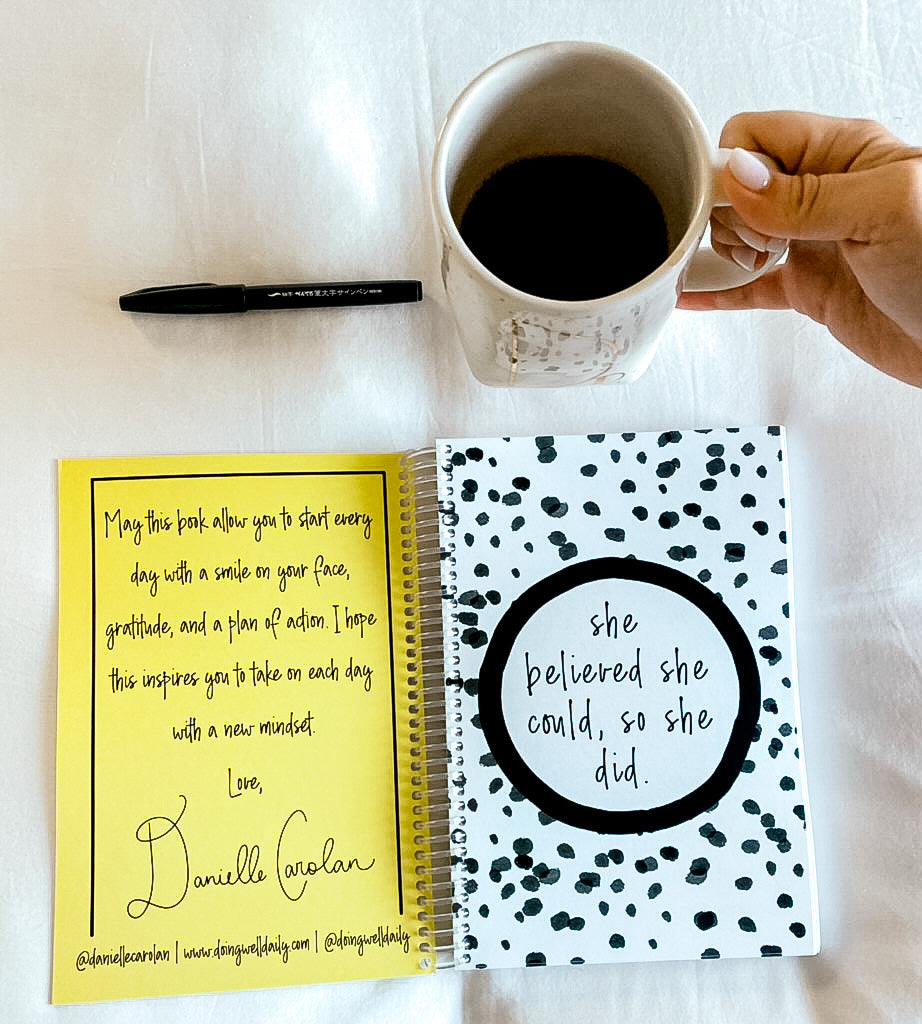 ぺんてる筆文字サインペン
May this book allow you to start every
day with a smile on your face,
gratitude, and a plan of action. I hope
this inspires you to take on each day
with a new mindset.
Love,
Danielle Carolan
@daniellecarolan | www.doingwelldaily.com | @doingwelldaily
she
believed she
could, so she
did.